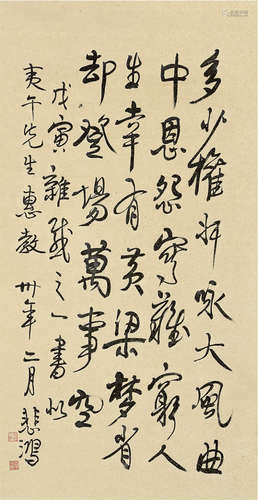 多少権奸咏大風曲
中恩怨寫難窮人
生幸有黃梁夢肯
却登場萬事空
戊寅雜感之一書似
夷午先生惠教 卅年二月 悲鴻